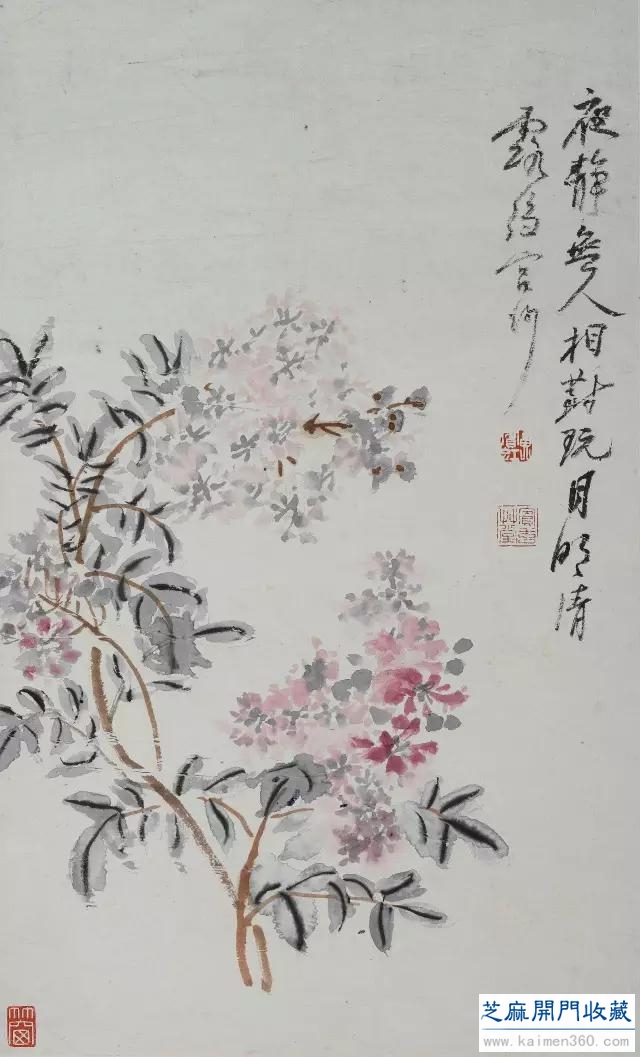 夜靜無人相對玩月明清
露
芝麻開門收藏
www.kaimen360.com